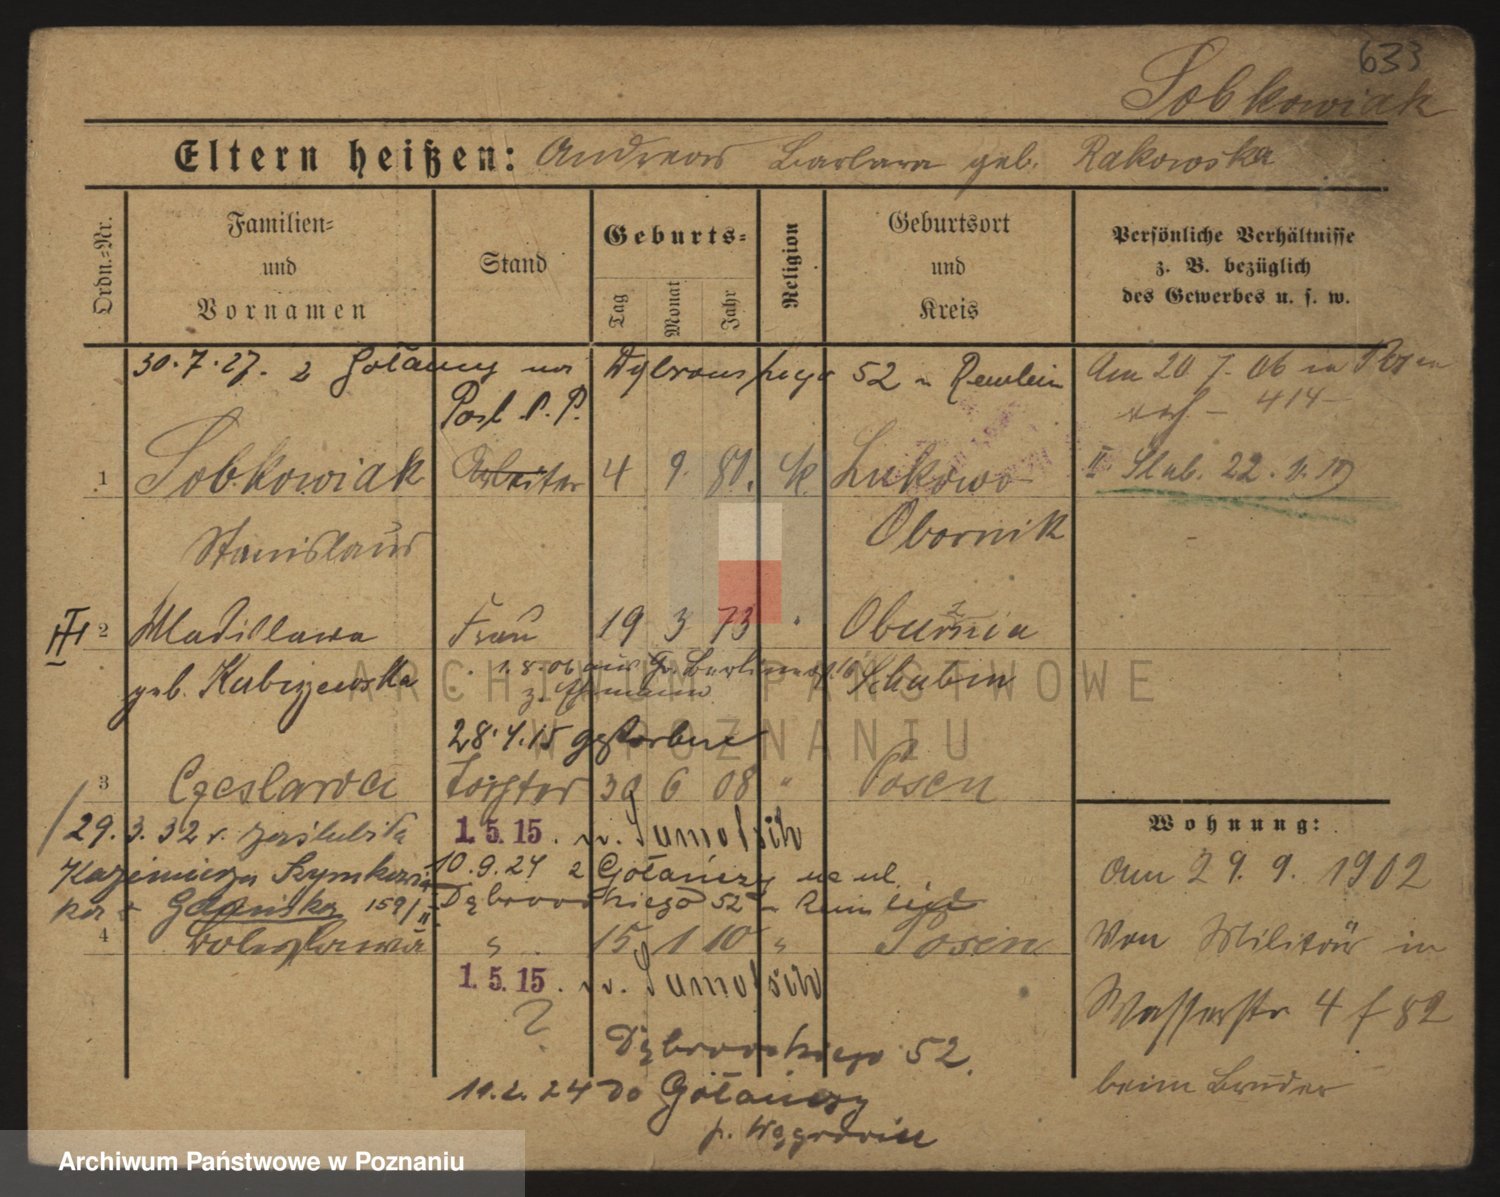 633
Sobkowiak
Eltern heißen: Andreas Barbara geb. Rakowska
Ordn.-Nr.
Familien- und Vornamen
Stand
Geburts-
Tag Monat Jahr
Religion
Geburtsort und Kreis
Persönliche Verhältnisse z. B. bezüglich des Gewerbes u. s. w.
30.7.27. z Gołańczy na Dąbrowskiego 52
Am 20 7. 06 in Posen
414
1 Sobkowiak Arbeiter 4 9. 80. k. Lukowo
II Stab. 22.
Stanislaus Obornik
2 Wladislawa Frau 19 3 73 "
geb. Kubizewska 1.8.06 aus Gr. Berlinerstr. Schubin
z. Ehemann
28.4.15 gestorben
3 Czeslawa Tochter 30 6 08 " Posen
29.3.32 r. zaślubiła 1. 5. 15.
Kazimierza 10.9.24 z Gołańczy na ul.
Gdańska 159/II Dąbrowskiego 52
4 Boleslawa " 15 1 10 " Posen
1. 5. 15.
?
Dąbrowskiego 52.
24 do Gołańczy
p. Wągrowiec
Wohnung:
Am 29. 9. 1902
Von Militär in
Wasserstr 4 f 82
beim Bruder
ARCHIWUM PAŃSTWOWE
W POZNANIU
Archiwum Państwowe w Poznaniu